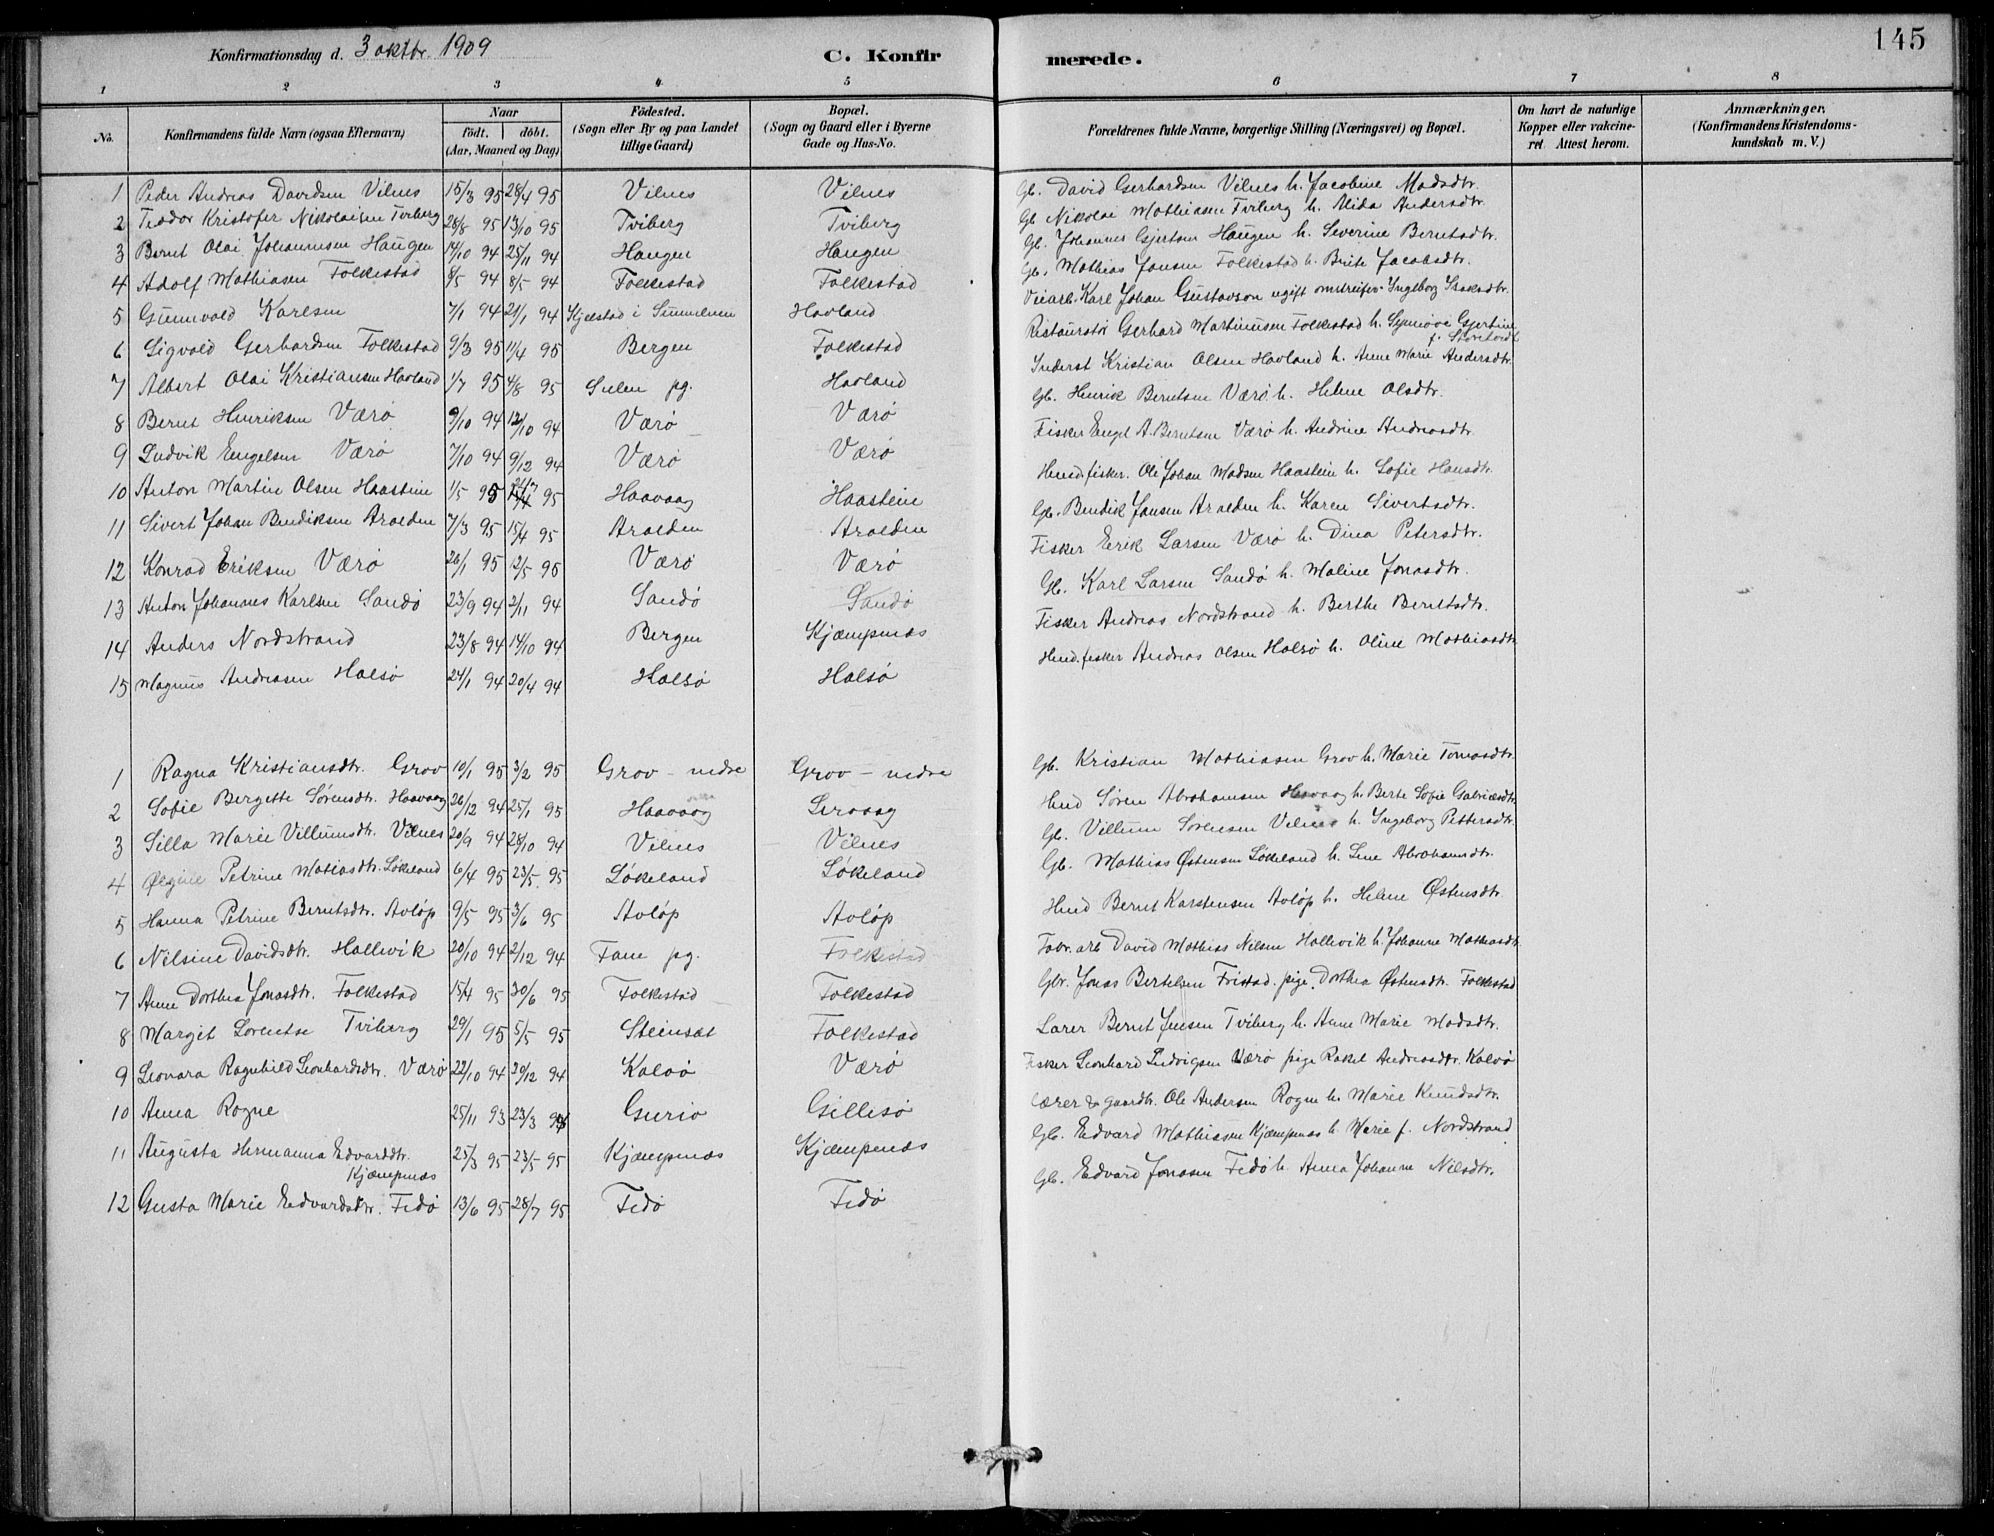 145
Konfirmationsdag d. 3 oktbr. 1909
C. Konfirmerede.
1 2 3 4 5 6 7 8
No. | Konfirmandens fulde Navn (ogsaa Efternavn) | Naar født. døbt. (Aar, Maaned og Dag) | Födested. (Sogn eller By og paa Landet tillige Gaard) | Bopæl. (Sogn og Gaard eller i Byerne Gade og Hus-No. | Forældrenes fulde Navne, borgerlige Stilling (Næringsvei) og Bopæl. | Om havt de naturlige Kopper eller vakcineret Attest herom. | Anmærkninger. (Konfirmandens Kristendomskundskab m. V.)
1 Peder Andreas Davidsen Vilnes 15/3 95 28/4 95 Vilnes Vilnes Gb. David Gerhardsen Vilnes h. Jacobine Madsdtr.
2 Teodor Kristofer Nikolaisen Tviberg 28/8 95 13/10 95 Tviberg Tviberg Gb Nikolai Mathiasen Tviberg h. Alida Andersdtr.
3 Bernt Olai Johannesen Haugen 14/10 94 25/11 94 Haugen Haugen Gb. Johannes Gjertsen Haugen h. Severine Berntsdtr.
4 Adolf Mathiasen Folkestad 8/5 94 8/5 94 Folkestad Folkestad Gb. Mathias Jansen Folkestad h. Brite Jacobsdtr.
5 Gunnvald Karlsen 7/1 94 21/1 94 Hovland Veiarb. Karl Johan Gustavson ugift omstreifer Ingeborg Isaksdtr.
6 Sigvald Gerhardsen Folkestad 9/3 95 1/4 95 Bergen Folkestad Gerhard Martinusen Folkestad h. Synnøve Gjertine
7 Albert Olai Kristiansen Hovland 1/7 95 4/8 95 Sulen pg. Hovland Inderst Kristian Olsen Hovland h. Anne Marie Andersdtr.
8 Bernt Henriksen Værø 9/10 94 12/10 94 Værø Værø Gb. Henrik Berntsen Værø h. Helene Olsdtr.
9 Ludvik Engelsen Værø 7/10 94 9/12 94 Værø Værø Fisker Engel A. Berntsen Værø h. Andrine Andreasdtr.
10 Anton Martin Olsen Haastein 1/5 95 95 Haavaag Haastein Husmd. fisker. Ole Johan Madsen Haastein h. Sofie Hansdtr.
11 Sivert Johan Bendiksen Aralden 7/3 95 15/4 95 Aralden Aralden Gb. Bendik Jansen Aralden h. Karen Sivertsdtr.
12 Konrad Eriksen Værø 26/1 95 12/5 95 Værø Værø Fisker Erik Larsen Værø h. Dina Petersdtr.
13 Anton Johannes Karlsen Sandø 23/9 94 2/11 94 Sandø Sandø Gb. Karl Larsen Sandø h. Maline Jonasdtr.
14 Anders Nordstrand 23/8 94 14/10 94 Bergen Kjæmpenæs Fisker Andreas Nordstrand h. Berthe Berntsdtr.
15 Magnus Andreasen Halsø 24/1 94 20/4 94 Halsø Halsø Husmd. fisker Andreas Olsen Halsø h. Oline Mathiasdtr.
1 Ragna Kristiansdtr. Grov 10/1 95 3/2 95 Grov - nedre Grov - nedre Gb. Kristian Mathiasen Grov h. Marie Tomasdtr.
2 Sofie Bergette Sørensdtr. Haavaag 26/12 94 25/1 95 Haavaag Leraag Husmd Søren Abrahamsen h. Berte Sofie Gabrielsdtr.
3 Silla Marie Villumsdtr. Vilnes 20/9 94 28/10 94 Vilnes Vilnes Gb. Villum Sørensen Vilnes h. Ingeborg Pettersdtr.
4 Petrine Matiasdtr. Løkeland 6/4 95 23/5 95 Løkeland Løkeland Gb. Mathias Østensen Løkeland h. Lene Abrahamdtr.
5 Hanna Petrine Berntsdtr. Avløp 9/5 95 3/6 95 Avløp Avløp Husmd Bernt Karstensen Avløp h. Helene Østensdtr.
6 Nilsine Davidsdtr. Hallevik 20/10 94 2/12 94 Fane pg. Folkestad Fabr. arb David Mathias Nilsen Hallevik h. Johanne Mathiasdtr.
7 Anne Dorthea Jonasdtr. Folkestad 15/4 95 30/6 95 Folkestad Folkestad Gbr. Jonas Bertelsen Fristad. pige Dorthea Østensdtr. Folkestad
8 Margit Lorentse Tviberg 29/1 95 5/5 95 Steinsæt Folkestad Lærer Bernt Jensen Tviberg h. Anne Marie Madsdtr.
9 Leonara Ragnhild Leonhardsdtr. Værø 22/10 94 30/12 94 Kalvø Værø Fisker Leonhard Ludvigsen Værø pige Rakel Andreasdtr. Kalvø
10 Anna Rogne 25/11 93 23/3 94 Gurio Gillesø Lærer & gaardbr. Ole Andersen Rogne h. Marie Knudsdtr.
11 Augusta Hermanna Edvardsdtr. Kjæmpenæs 25/3 95 23/5 95 Kjæmpenæs Kjæmpenæs Gb. Edvard Mathiasen Kjæmpenæs h. Marie f. Nordstrand
12 Gusta Marie Edvardsdtr. Fedø 13/6 95 28/7 95 Fedø Fedø Gb. Edvard Jonasen Fedø h. Anna Johanne Nilsdtr.